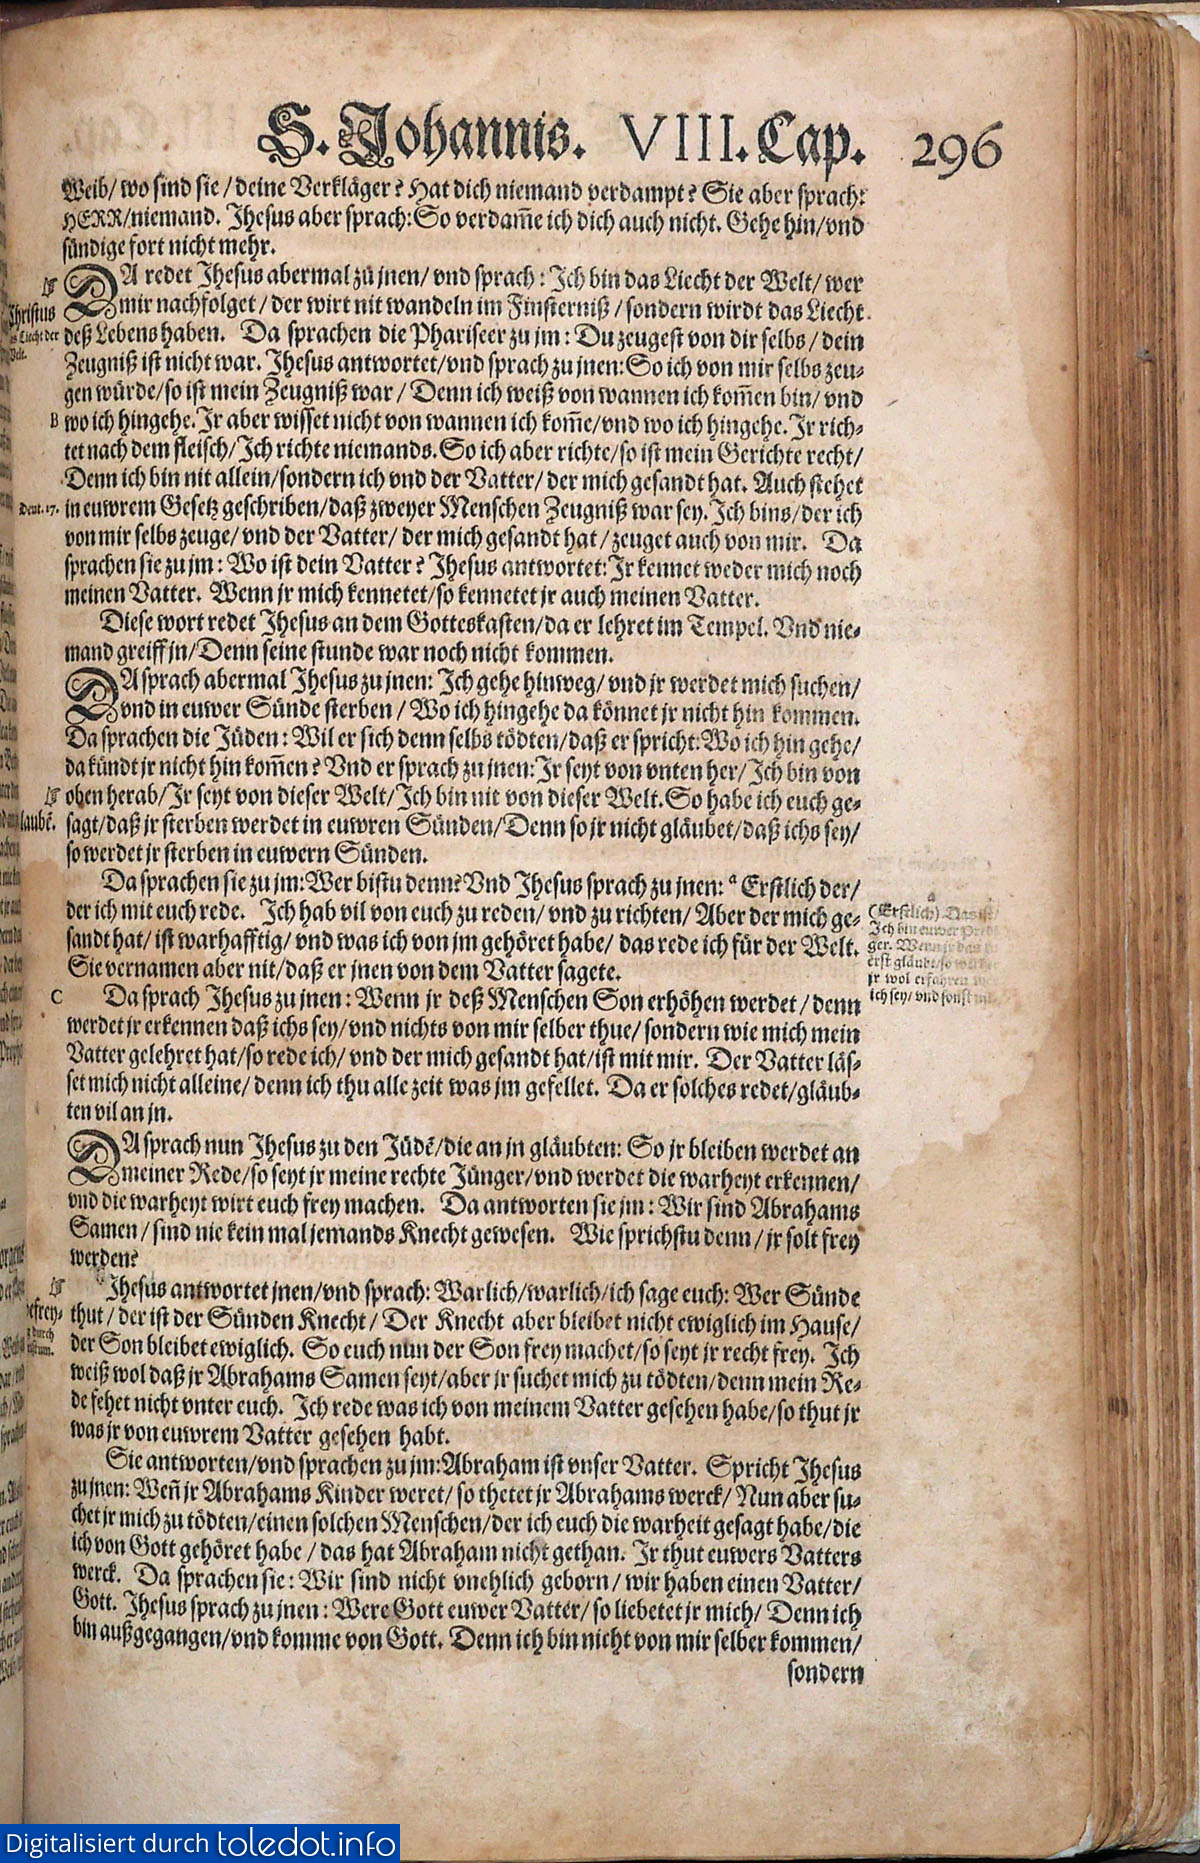 S. Johannis. VIII. Cap. 296
Weib/ wo sind sie / deine Verkläger? Hat dich niemand verdampt? Sie aber sprach:
HERR/niemand. Jhesus aber sprach: So verdam̃e ich dich auch nicht. Gehe hin/vnd
sündige fort nicht mehr.
DA redet Jhesus abermal zu jnen/ vnd sprach: Ich bin das Liecht der Welt/ wer
mir nachfolget / der wirt nit wandeln im Finsterniß / sondern wirdt das Liecht
Christus
deß Lebens haben. Da sprachen die Phariseer zu jm: Du zeugest von dir selbs / dein
Liecht der
Welt.
Zeugniß ist nicht war. Jhesus antwortet/vnd sprach zu jnen: So ich von mir selbs zeu-
gen würde/so ist mein Zeugniß war / Denn ich weiß von wannen ich kom̃en bin/ vnd
B wo ich hingehe. Ir aber wisset nicht von wannen ich kom̃e/vnd wo ich hingehe. Ir rich-
tet nach dem fleisch/Ich richte niemands. So ich aber richte/so ist mein Gerichte recht/
Denn ich bin nit allein/sondern ich vnd der Vatter/ der mich gesandt hat. Auch stehet
Deut. 17. in euwrem Gesetz geschriben/daß zweyer Menschen Zeugniß war sey. Ich bins/der ich
von mir selbs zeuge/ vnd der Vatter/ der mich gesandt hat / zeuget auch von mir. Da
sprachen sie zu jm: Wo ist dein Vatter? Jhesus antwortet: Ir kennet weder mich noch
meinen Vatter. Wenn jr mich kennetet/so kennetet jr auch meinen Vatter.
Diese wort redet Jhesus an dem Gotteskasten/da er lehret im Tempel. Vnd nie-
mand greiff jn/Denn seine stunde war noch nicht kommen.
DA sprach abermal Jhesus zu jnen: Ich gehe hinweg/ vnd jr werdet mich suchen/
vnd in euwer Sünde sterben / Wo ich hingehe da könnet jr nicht hin kommen.
Da sprachen die Jüden: Wil er sich denn selbs tödten/daß er spricht: Wo ich hin gehe/
da kündt jr nicht hin kom̃en? Vnd er sprach zu jnen: Ir seyt von vnten her/ Ich bin von
oben herab/Ir seyt von dieser Welt/Ich bin nit von dieser Welt. So habe ich euch ge-
sagt/daß jr sterben werdet in euwren Sünden/Denn so jr nicht gläubet/daß ichs sey/
so werdet jr sterben in euwern Sünden.
Da sprachen sie zu jm: Wer bistu denn? Vnd Jhesus sprach zu jnen: ᵃ Erstlich der/
der ich mit euch rede. Ich hab vil von euch zu reden/ vnd zu richten/ Aber der mich ge-
sandt hat/ ist warhafftig/ vnd was ich von jm gehöret habe/ das rede ich für der Welt.
Sie vernamen aber nit/daß er jnen von dem Vatter sagete.
a
(Erstlich) Das ist/
Ich bin euwer
ger. Wenn jr das
erst gläubt/so
jr wol erfahren
ich sey/ vnd sonst
C Da sprach Jhesus zu jnen: Wenn jr deß Menschen Son erhöhen werdet / denn
werdet jr erkennen daß ichs sey/vnd nichts von mir selber thue/ sondern wie mich mein
Vatter gelehret hat/so rede ich/ vnd der mich gesandt hat/ist mit mir. Der Vatter läs-
set mich nicht alleine/ denn ich thu alle zeit was jm gefellet. Da er solches redet/gläub-
ten vil an jn.
DA sprach nun Jhesus zu den Jüdẽ/die an jn gläubten: So jr bleiben werdet an
meiner Rede/so seyt jr meine rechte Jünger/vnd werdet die warheyt erkennen/
vnd die warheyt wirt euch frey machen. Da antworten sie jm: Wir sind Abrahams
Samen / sind nie kein mal jemands Knecht gewesen. Wie sprichstu denn / jr solt frey
werden?
Jhesus antwortet jnen/vnd sprach: Warlich/warlich/ich sage euch: Wer Sünde
thut / der ist der Sünden Knecht / Der Knecht aber bleibet nicht ewiglich im Hause/
durch
der Son bleibet ewiglich. So euch nun der Son frey machet/so seyt jr recht frey. Ich
weiß wol daß jr Abrahams Samen seyt/aber jr suchet mich zu tödten/denn mein Re-
de fehet nicht vnter euch. Ich rede was ich von meinem Vatter gesehen habe/so thut jr
was jr von euwrem Vatter gesehen habt.
Sie antworten/vnd sprachen zu jm: Abraham ist vnser Vatter. Spricht Jhesus
zu jnen: Weñ jr Abrahams Kinder weret/ so thetet jr Abrahams werck/ Nun aber su-
chet jr mich zu tödten/einen solchen Menschen/der ich euch die warheit gesagt habe/die
ich von Gott gehöret habe / das hat Abraham nicht gethan. Ir thut euwers Vatters
werck. Da sprachen sie: Wir sind nicht vnehlich geborn / wir haben einen Vatter/
Gott. Jhesus sprach zu jnen: Were Gott euwer Vatter/ so liebetet jr mich/ Denn ich
bin außgegangen/vnd komme von Gott. Denn ich bin nicht von mir selber kommen/
sondern
Digitalisiert durch toledot.info